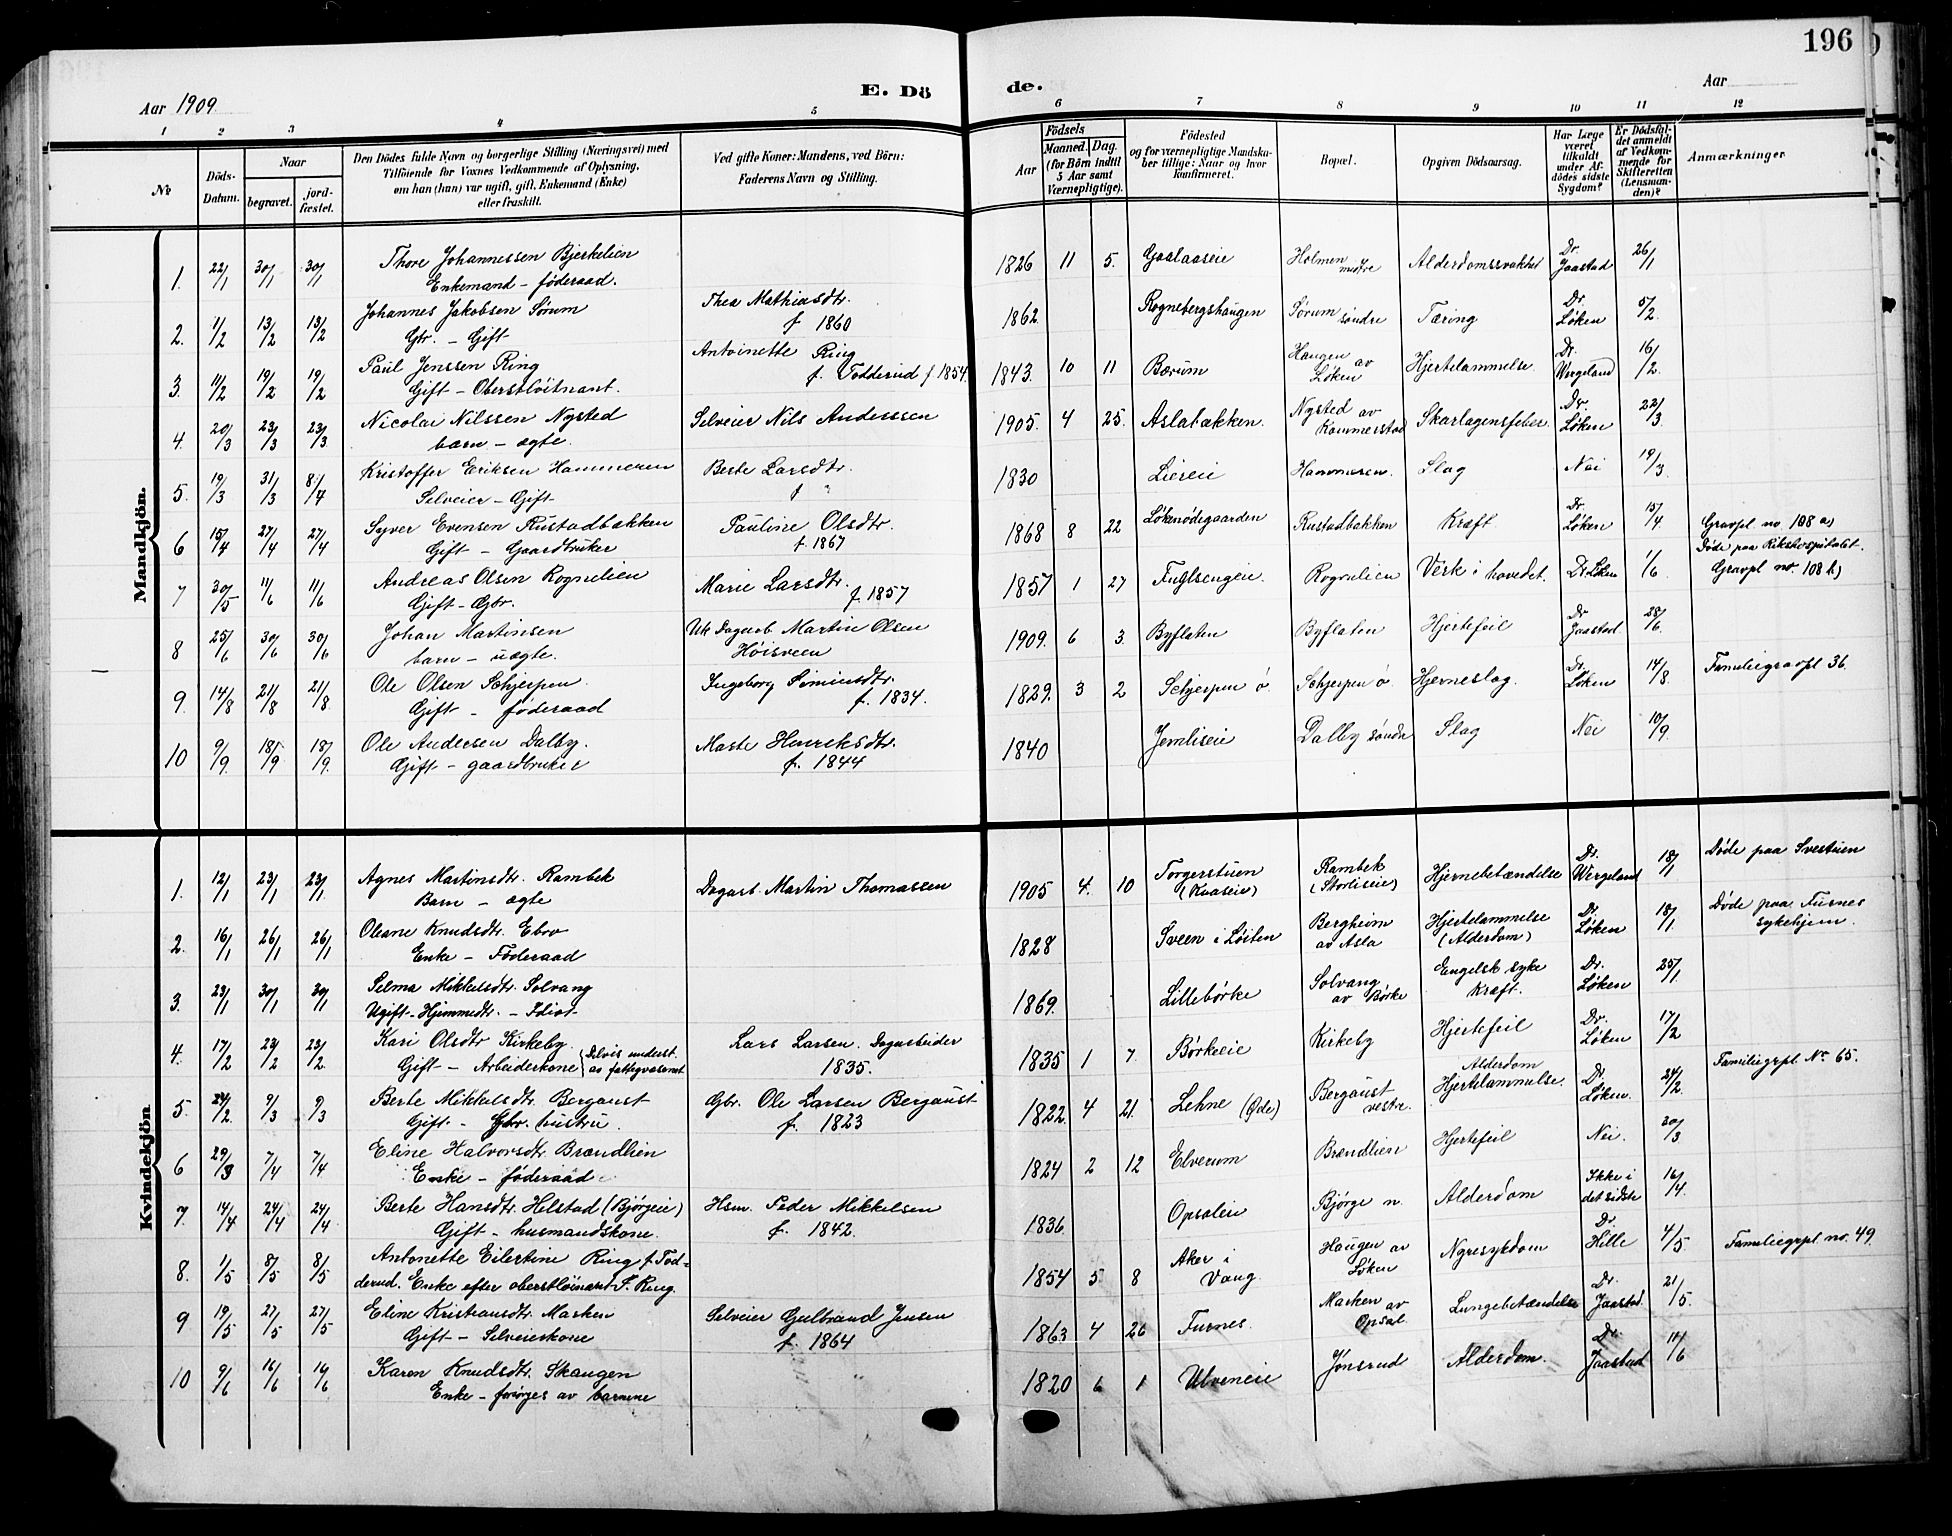 196
Aar 1909
E. Dö de.
Aar
1 2 3 4 5 6 7 8 9 10 11 12
№
Döds-Datum.
Naar begravet. jordfæstet.
Den Dödes fulde Navn og borgerlige Stilling (Næringsvei) med
Tilföiende for Voxnes Vedkommende af Oplysning,
om han (hun) var ugift, gift, Enkemand (Enke)
eller fraskilt.
Ved gifte Koner: Mandens, ved Börn:
Faderens Navn og Stilling.
Födsels
Aar Maaned. Dag.
(for Börn indtil
5 Aar samt
Værnepligtige).
Födested
og for værnepligtige Mandska-
ber tillige: Naar og hvor
konfirmeret.
Bopæl.
Opgiven Dödsaarsag.
Har Læge
været
tilkaldt
under Af-
dödes sidste
Sygdom?
Er Dödsfal-
det anmeldt
af Vedkom-
mende for
Skifteretten
(Lensman-
den)?
Anmærkninger
Mandkjön.
1. 22/1 30/1 30/1 Thore Johannessen Bjerkelien 1826 11 5. Gaalaaseie Holmen nedre Alderdomssvakhet Dr. Jaastad 26/1
Enkemand – føderaad.
2. 11/2 13/2 13/2 Johannes Jakobsen Sørum Thea Mathiasdtr. 1862 Rognebergshaugen Sørum søndre Tæring Dr. Løken 5/2.
Gbr. – Gift f 1860
3. 11/2 19/2 19/2 Paul Jenssen Ring Antoinette Ring 1843. 10 11 Bærum Haugen av Løken Hjertelammelse. Dr. Wergeland 16/2.
Gift – Oberstløitnant. f. Todderud f 1854.
4. 20/3 23/3 23/3 Nicolai Nilssen Nysted Selveier Nils Anderssen 1905. 4 25. Aslabakken. Nysted av Kommerstad Skarlagensfeber. Dr. Løken 22/3
barn – ægte.
5. 19/3 31/3 8/4 Kristoffer Eriksen Hammeren Berte Larsdtr. 1830 Liereie Hammeren. Slag Nei 19/3.
Selveier – Gift f "
6 15/4 27/4 27/4 Syver Evensen Rustadbakken Pauline Olsdtr. 1868 8 22 Løkenødegaarden Rustadbakken Kræft Dr. Løken 15/4 Gravpl no. 108 a)
Gift – Gaardbruker f. 1867 Døde paa Rikshospitalet.
7 30/5 11/6 11/6 Andreas Olsen Rognelien Marie Larsdtr. 1857 1 27 Fuglsengeie. Rognelien Verk i hovedet. Dr Løken 1/6 Gravpl no. 108 b)
Gift – Gbr. f. 1857
8 25/6 30/6 30/6 Johan Martinsen Uk Dagarb. Martin Olsen 1909. 6 3. Byflaten Byflaten Hjertefeil Dr Jaastad 28/6.
barn – uægte. Høisveen
9. 14/8 21/8 21/8 Ole Olsen Schjerpen. Ingeborg Simensdtr. 1829. 3 2 Schjerpen ø. Schjerpen ø. Hjerneslag. Dr. Løken 14/8 Familiegravpl 36.
Gift – føderaad f. 1834.
10 9/9. 18/9 18/9. Ole Andersen Dalby. Marte Henriksdtr. 1840 Jemliseie Dalby søndr Slag Nei 10/9.
Gift – gaardbruker f. 1844
Kvindekjön.
1. 12/1 23/1 23/1 Agnes Martinsdtr. Rambek Dagarb. Martin Thomassen 1905 4. 10 Torgerstuen (Kvaseie) Rambek (Storliseie) Hjernebetændelse Dr. Wergeland 18/1 Døde paa Svestuen
Barn – ægte
2. 16/1 26/1 26/1 Oleane Knudsdtr. Ebro 1828 Sveen i Løiten Bergheim av Asla Hjertelammelse (Alderdom) Dr. Løken 18/1. Døde paa Furnes sykehjem.
Enke – Føderaad
3. 23/1 30/1 30/1 Selma Mikkelsdtr. Solvang 1869. Lillebørke Solvang av Børke Engelsk syke Kræft. Dr. Løken 25/1
Ugift – Hjemmedtr. – Idiot
4. 17/2 23/2 23/2. Kari Olsdtr Kirkeby. Lars Larsen. Dagarbeider 1835 1 7. Børkeeie Kirkeby Hjertefeil Dr. Løken 17/2
Gift – Arbeiderkone (Delvis underst. av fattigvæsenet 1835.
5 24/2 9/3 9/3 Berte Mikkelsdtr. Bergaust Gbr. Ole Larsen Bergaust 1822. 4 21. Lehne (Øde) Bergaust vestre. Alderdom Hjertelammelse. Dr. Løken. 24/2. Familiegrpl No 65.
Gift. – Gbr. hustru. f. 1823
6 29/3 7/4 7/4 Eline Halvorsdtr. Brændlien 1824 2 12 Elverum Brændlien Hjertefeil Nei. 30/3
Enke – føderaad
7. 14/4 24/4 24/4 Berte Hansdtr. Helstad (Bjørgeie) Hsm. Peder Mikkelsen 1836. Opsaleie Bjørge n. Alderdom Ikke i det sidste 16/4.
Gift – husmandskone. f. 1842.
8. 1/5 8/5 8/5 Antonette Eilertine Ring f. Tod- 1854 5 8 Aker i Vang. Haugen av Løken Nyresykdom Dr. Hille 4/5 Familiegrpl no. 49.
derud. Enke efter oberstløitnant P. Ring.
9 19/5 27/5 27/5 Eline Kristiansdtr. Marken Selveier Gulbrand Jensen 1863 4 26 Furnes. Marken av Opsal Lungebetændelse Dr. Jaastad. 21/5.
Gift – Selveierkone f. 1864
10 9/6 16/6 16/6 Karen Knudsdtr. Skaugen 1820 6 1 Ulveneie Jønsrud Alderdom. Dr. Jaastad 11/6
Enke – forsørges av barnene